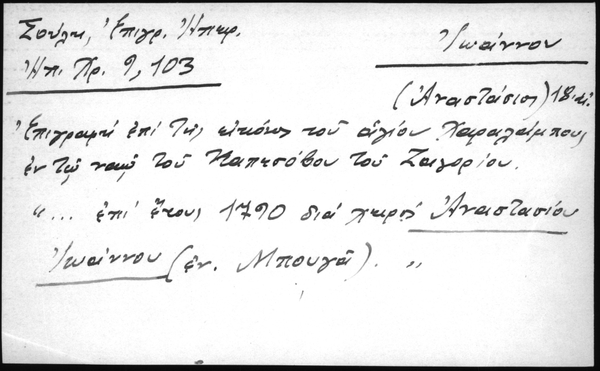 Σούλη, Ἐπιγρ. Ἠπειρ.
Ἠπ. Χρ. 9, 103
Ἰωάννου
(Ἀναστάσιος) 18. αἰ.
Ἐπιγραφή ἐπί τῆς εἰκόνος τοῦ ἁγίου Χαραλάμπους
ἐν τῷ ναῷ τοῦ Καπεσόβου τοῦ Ζαγορίου.
"... ἐπί ἔτους 1790 διά χειρός Ἀναστασίου
Ἰωάννου (ἐν. Μπουγᾶ). "